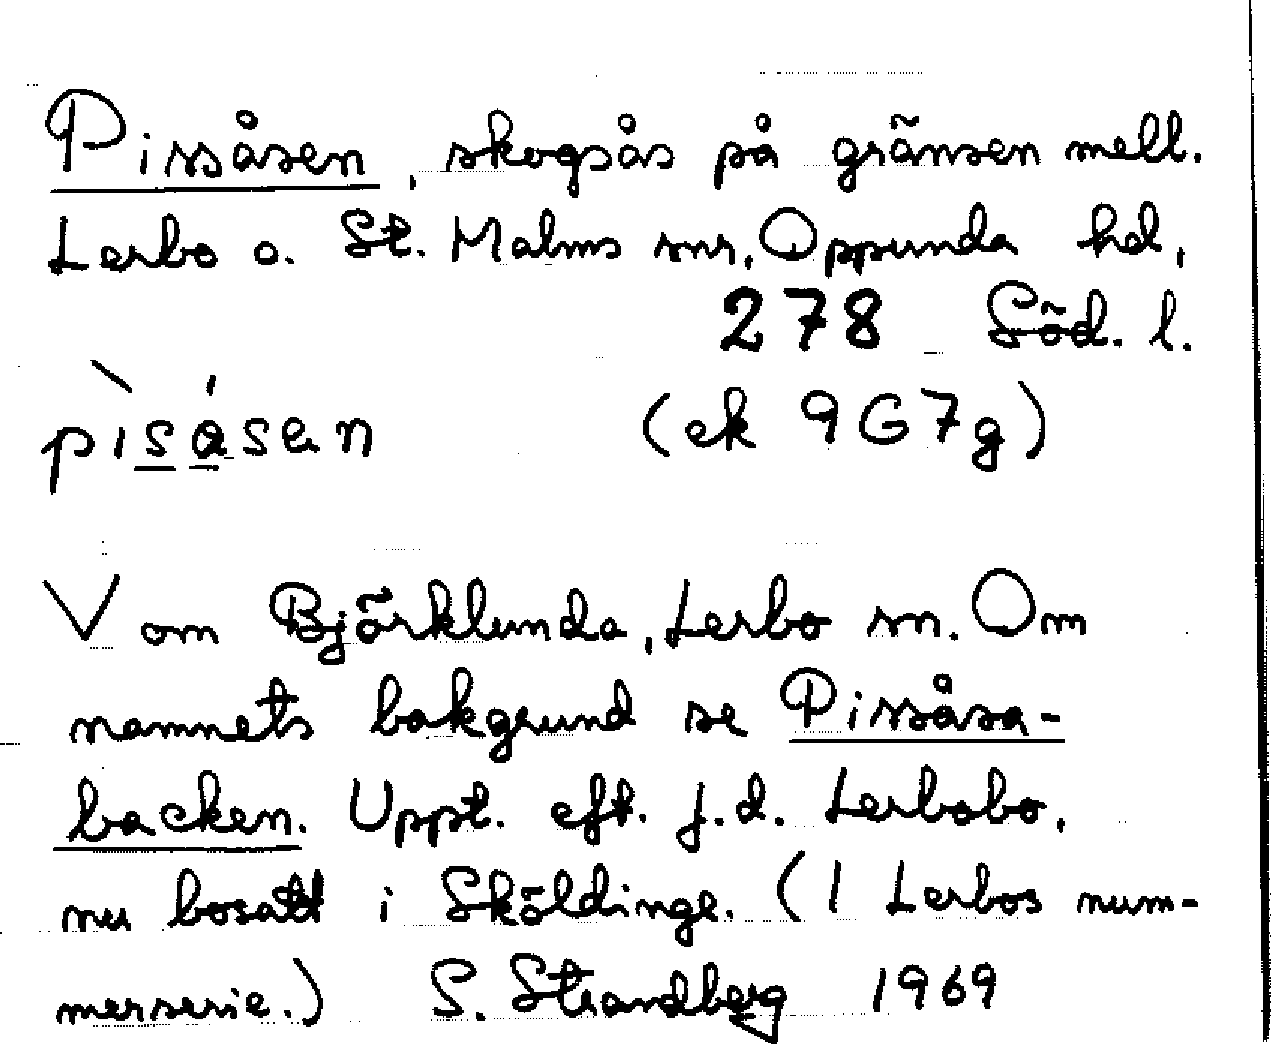 Pissåsen, skogsås på gränsen mell.
Lerbo o. St. Malms snr, Oppunda hd,
278 Söd. l.
pìsåsen (ek 9G7g)
V om Björklunda, Lerbo sn. Om
namnets bakgrund se Pissåsa-
backen. Uppt. eft. f.d. Lerbobo,
nu bosatt i Sköldinge. (I Lerbos num-
merserie.) S. Strandberg 1969